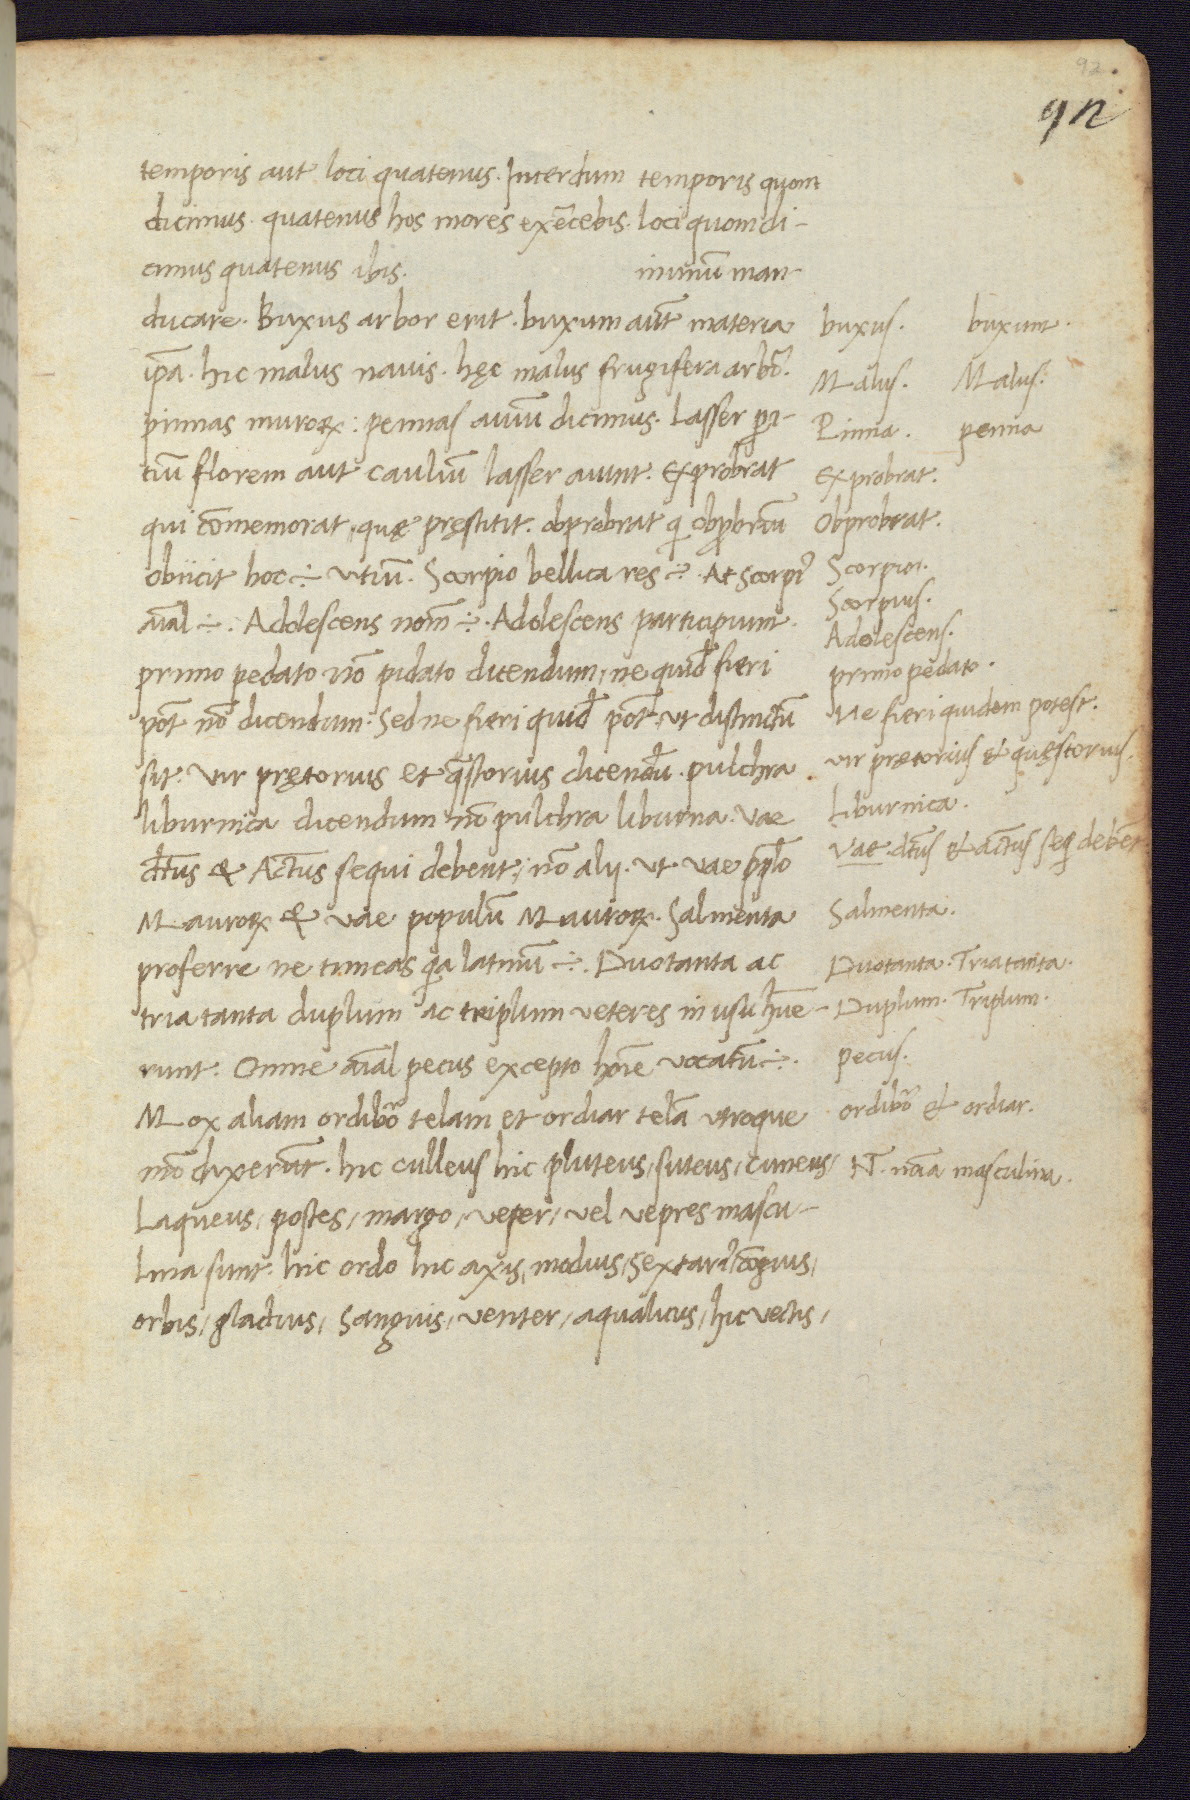 92.
92
temporis aut loci quatenus. Interdum temporis quom
dicimus. quatenus hos mores exercebis. loci quom di-
cimus quatenus ibis. inuinũ man-
ducare. Buxus arbor erit. buxum aũt materia
ip̃a. hic malus nauis. hęc malus frugifera arbõ.
pinnas muroꝝ: pennas auiũ dicimus. Lasser
tiũ florem aut cauliũ lasser aiunt. Exprobrat
qui cõmemorat, quę pręstitit. obprobrat
obiicit hoc ÷ vitiũ. Scorpio bellica res ÷. At scorpi᾽
aĩal ÷. Adolescens nom̃ ÷. Adolescens participium.
primo pedato nõ pidato dicendum, ne quid̃ fieri
põt nõ dicendum. Sed ne fieri quid̃ põt. ut distinctũ
sit. Vir prętorius et q̃storius dicendũ. pulchra
liburnica dicendum nõ pulchra liburna. Vae
dt̃us & Actũs sequi debent, nõ alij. ut vae pp̃lo
Mauroꝝ & vae populũ Mauroꝝ. Salmenta
proferre ne timeas q̃a latinũ ÷. Duotanta ac
tria tanta duplum ac triplum veteres in usu hũe-
runt. Omne aĩal pecus excepto hoĩe vocatũ ÷.
Mox aliam ordibõr telam et ordiar telã utroque
mõ dixerũt. hic culleus hic pluteus, suteus, cuneus,
Laqueus, postes, margo, veper, vel vepres mascu-
lina sunt. hic ordo hic axis, modius, sextari᾽, cõgius,
orbis, gladius, sanguis, venter, aqualicus, hic vectis,
buxus. buxum.
Malus. Malus.
Pinna. penna
Exprobrat.
Obprobrat.
Scorpio.
Scorpius.
Adolescens.
primo pedato.
Ne fieri quidem potest.
vir prętorius & quęstorius.
Liburnica.
Vae. dt̃us & actũs seq̃ debẽt
Salmenta.
Duotanta. Triatanta.
Duplum. Triplum.
pecus.
ordibõr & ordiar.
Nõ. noĩa masculina.